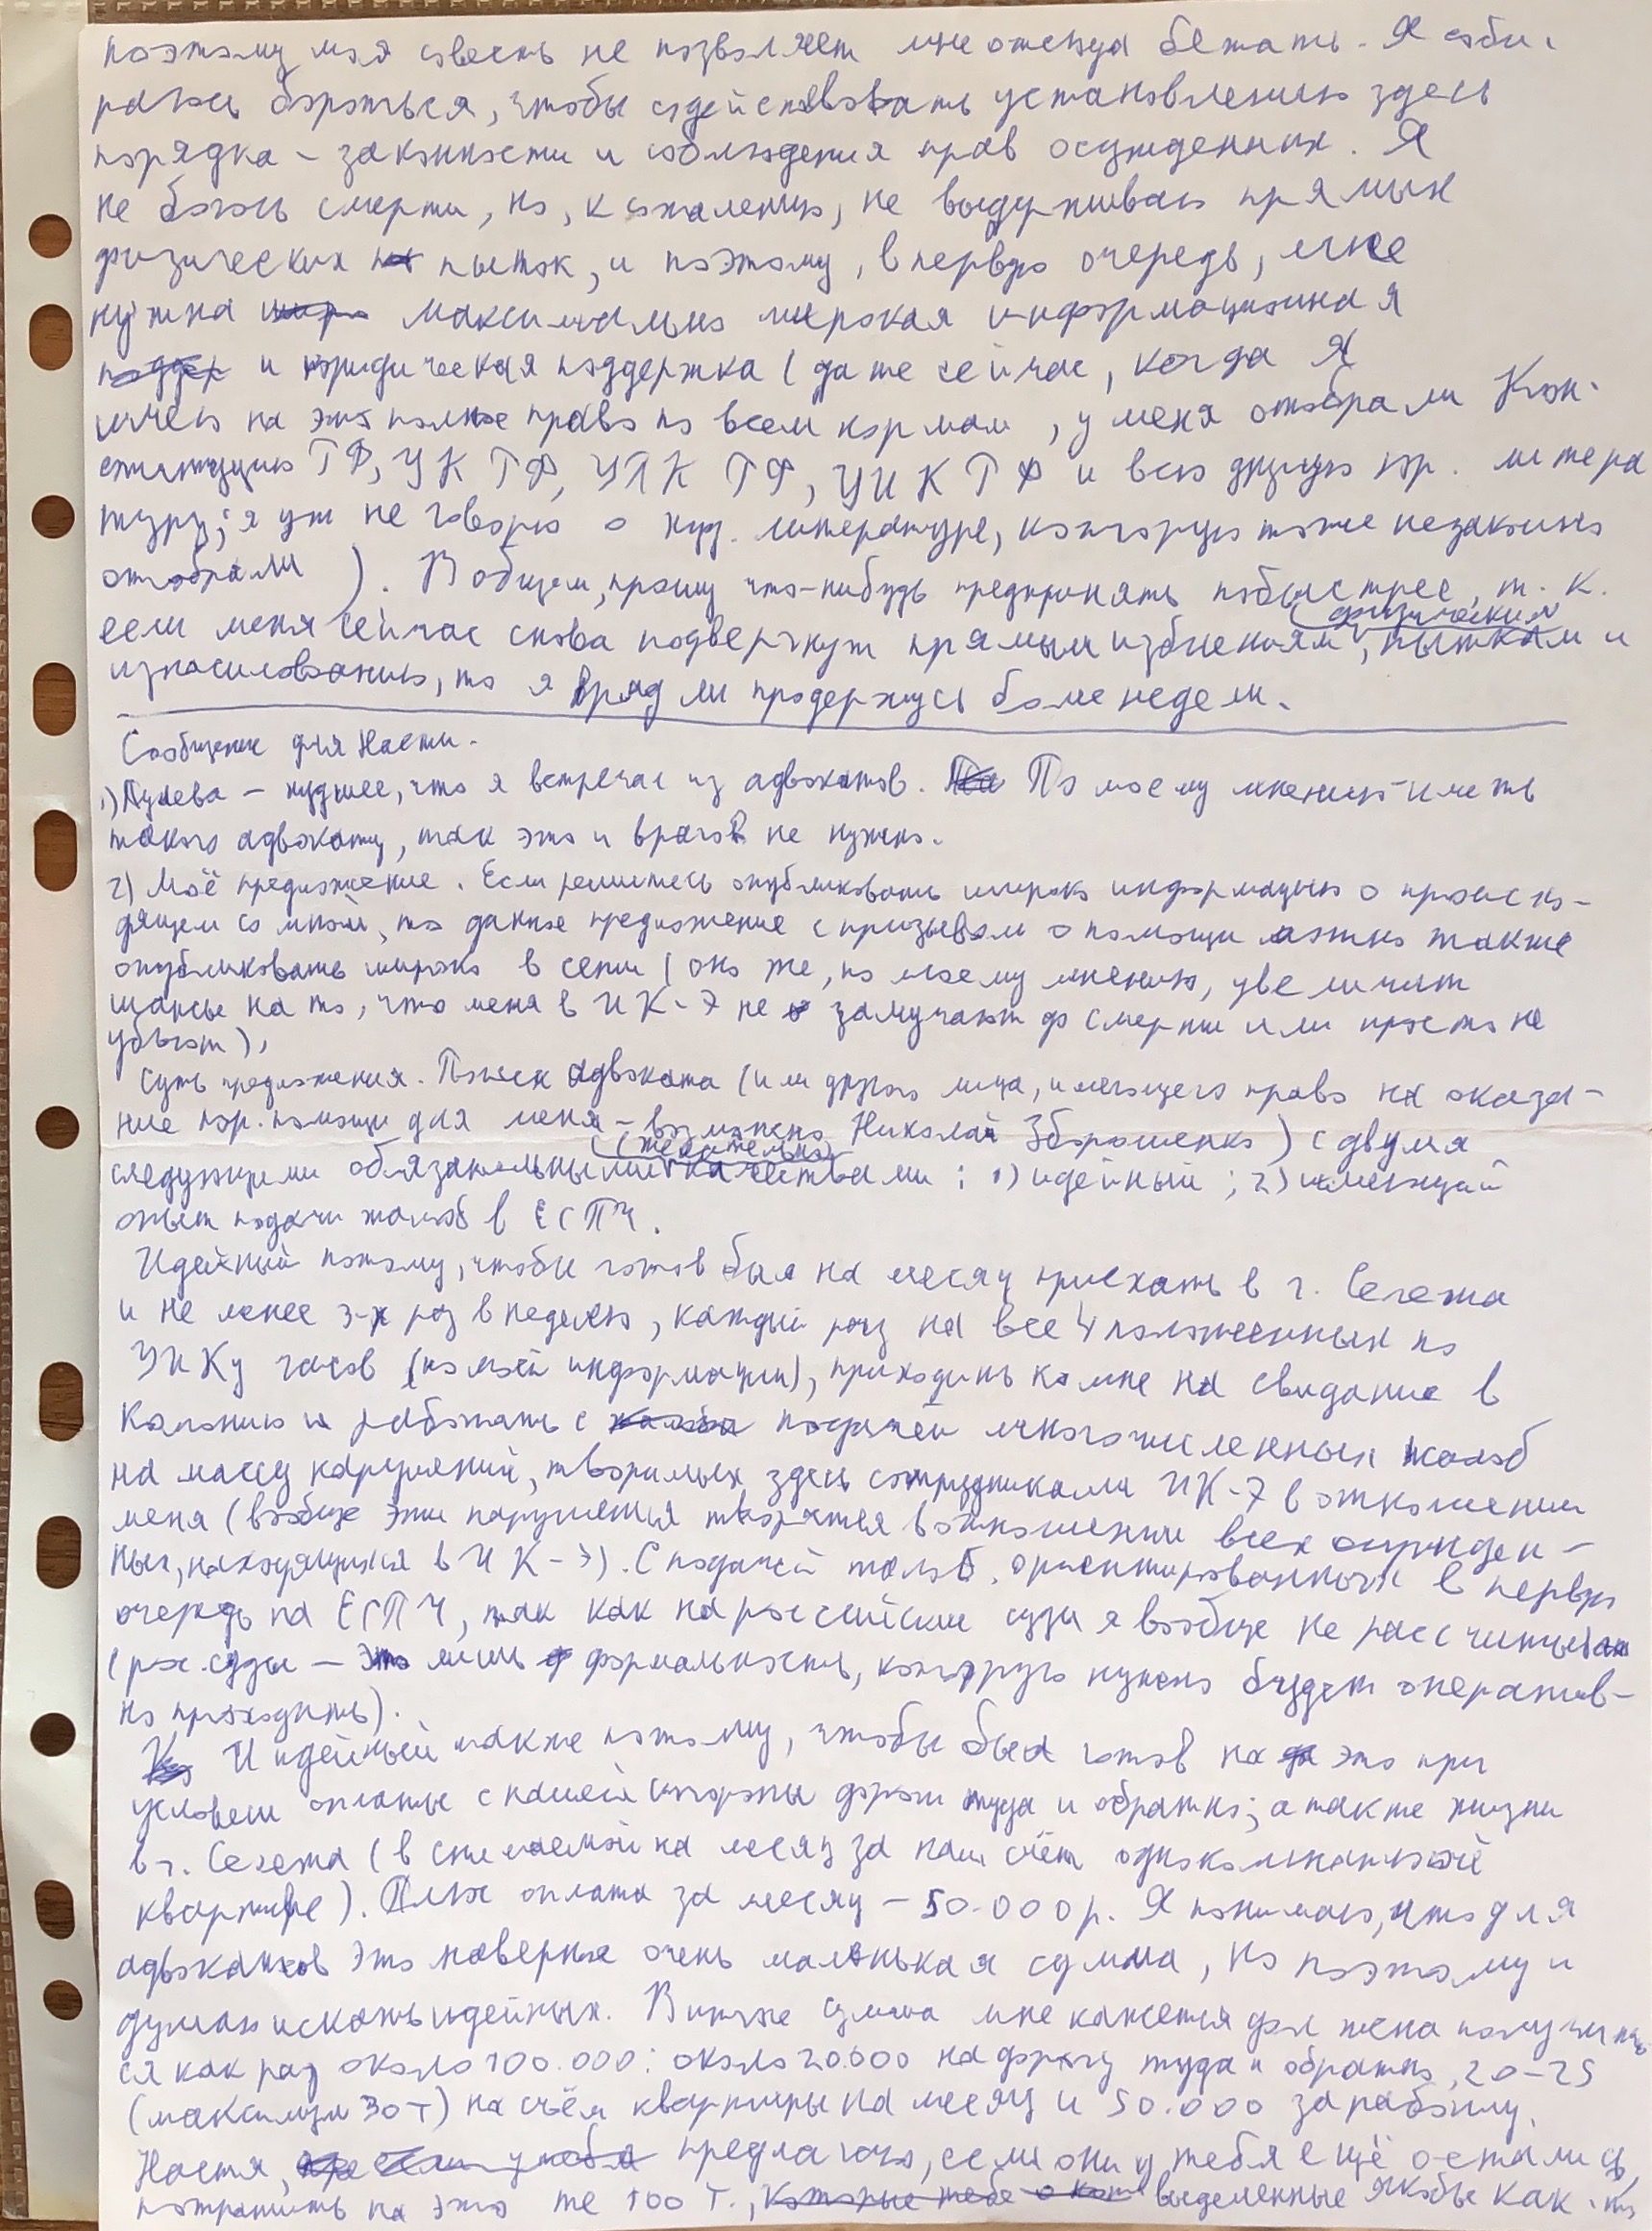 поэтому моя совесть не позволяет мне отсюда бежать. Я соби-
раюсь бороться, чтобы содействовать установлению здесь
порядка – законности и соблюдения прав осужденных. Я
не боюсь смерти, но, к сожалению, не выдерживаю прямых
физических пыток, и поэтому, в первую очередь, мне
нужна максимально широкая информационная
и юридическая поддержка (даже сейчас, когда я
имею на это полное право по всем нормам, у меня отобрали Кон-
ституцию РФ, УК РФ, УПК РФ, УИК РФ и всю другую юр. литера
туру; я уж не говорю о худ. литературе, которую тоже незаконно
отобрали). В общем, прошу что-нибудь предпринять побыстрее, т.к.
если меня сейчас снова подвергнут прямым избиениям, (физическим) пыткам и
изнасилованию, то я вряд ли продержусь более недели.
Сообщение для Насти.
1) Пулева – худшее, что я встречал из адвокатов. По моему мнению иметь
такого адвоката, так это и врагов не нужно.
2) Моё предложение. Если решитесь опубликовать широко информацию о происхо-
дящем со мной, то данное предложение с призывом о помощи можно также
опубликовать широко в сети (оно же, по моему мнению, увеличит
шансы на то, что меня в ИК-7 не замучают до смерти или просто не
убьют).
Суть предложения. Поиск адвоката (или другого лица, имеющего право на оказа-
ние юр. помощи для меня – возможно Николай Зборошенко) с двумя
следующими обязательными (желательно) качествами: 1) идейный; 2) имеющий
опыт подачи жалоб в ЕСПЧ.
Идейный потому, чтобы готов был на месяц приехать в г. Сегежа
и не менее 3-х раз в неделю, каждый раз на все 4 положенных по
УИКу часов (по моей информации), приходить ко мне на свидание в
колонию и работать с подачей многочисленных жалоб
на массу нарушений, творимых здесь сотрудниками ИК-7 в отношении
меня (вообще эти нарушения творятся в отношении всех осужден-
ных, находящихся в ИК-7). С подачей жалоб, ориентированных в первую
очередь на ЕСПЧ, так как на российские суды я вообще не рассчитываю
(рос. суды – это лишь формальность, которую нужно будет оператив-
но проходить).
И идейный также потому, чтобы был готов на это при
условии оплаты с нашей стороны дороги туда и обратно; а также жизни
в г. Сегежа (в снимаемой на месяц за наш счёт однокомнатной
квартире). Плюс оплата за месяц – 50.000 р. Я понимаю, что для
адвокатов это наверное очень маленькая сумма, но поэтому и
думаю искать идейных. В итоге сумма мне кажется должна получить
ся как раз около 100.000: около 20.000 на дорогу туда и обратно, 20-25
(максимум 30т) на съём квартиры на месяц и 50.000 за работу.
Настя, предлагаю, если они у тебя ещё остались,
потратить на это те 100 т., выделенные якобы как-то